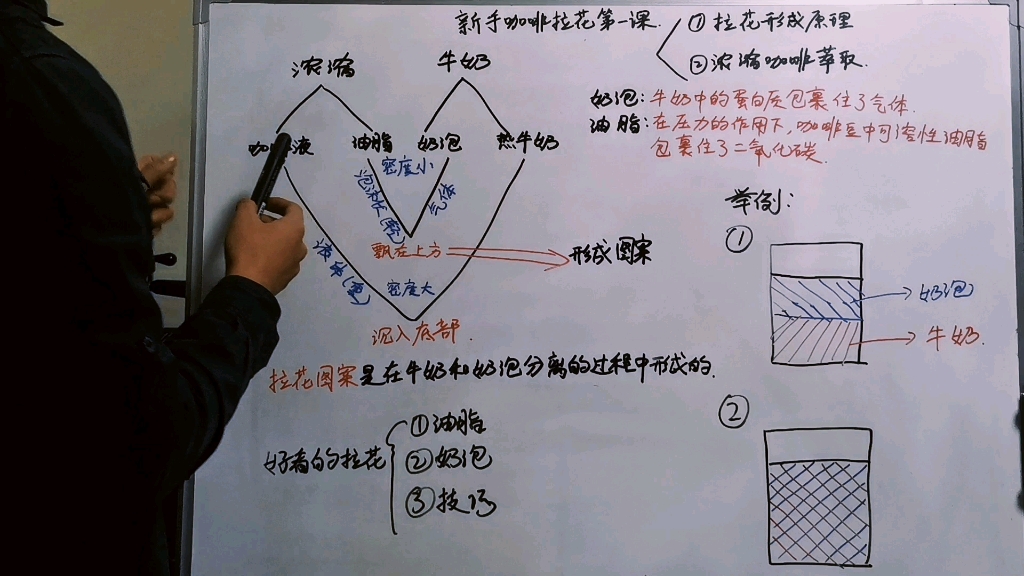 新手咖啡拉花第一课
① 拉花形成原理
② 浓缩咖啡萃取.
浓缩
牛奶
奶泡: 牛奶中的蛋白质包裹住了气体.
油脂: 在压力的作用下,咖啡豆中可溶性油脂
包裹住了二氧化碳.
液
油脂
奶泡
热牛奶
密度小
气体
飘在上方
形成图案
密度大
沉入底部.
举例:
①
奶泡
牛奶.
拉花图案是在牛奶和奶泡分离的过程中形成的.
②
好看的拉花
①油脂
②奶泡
③技巧